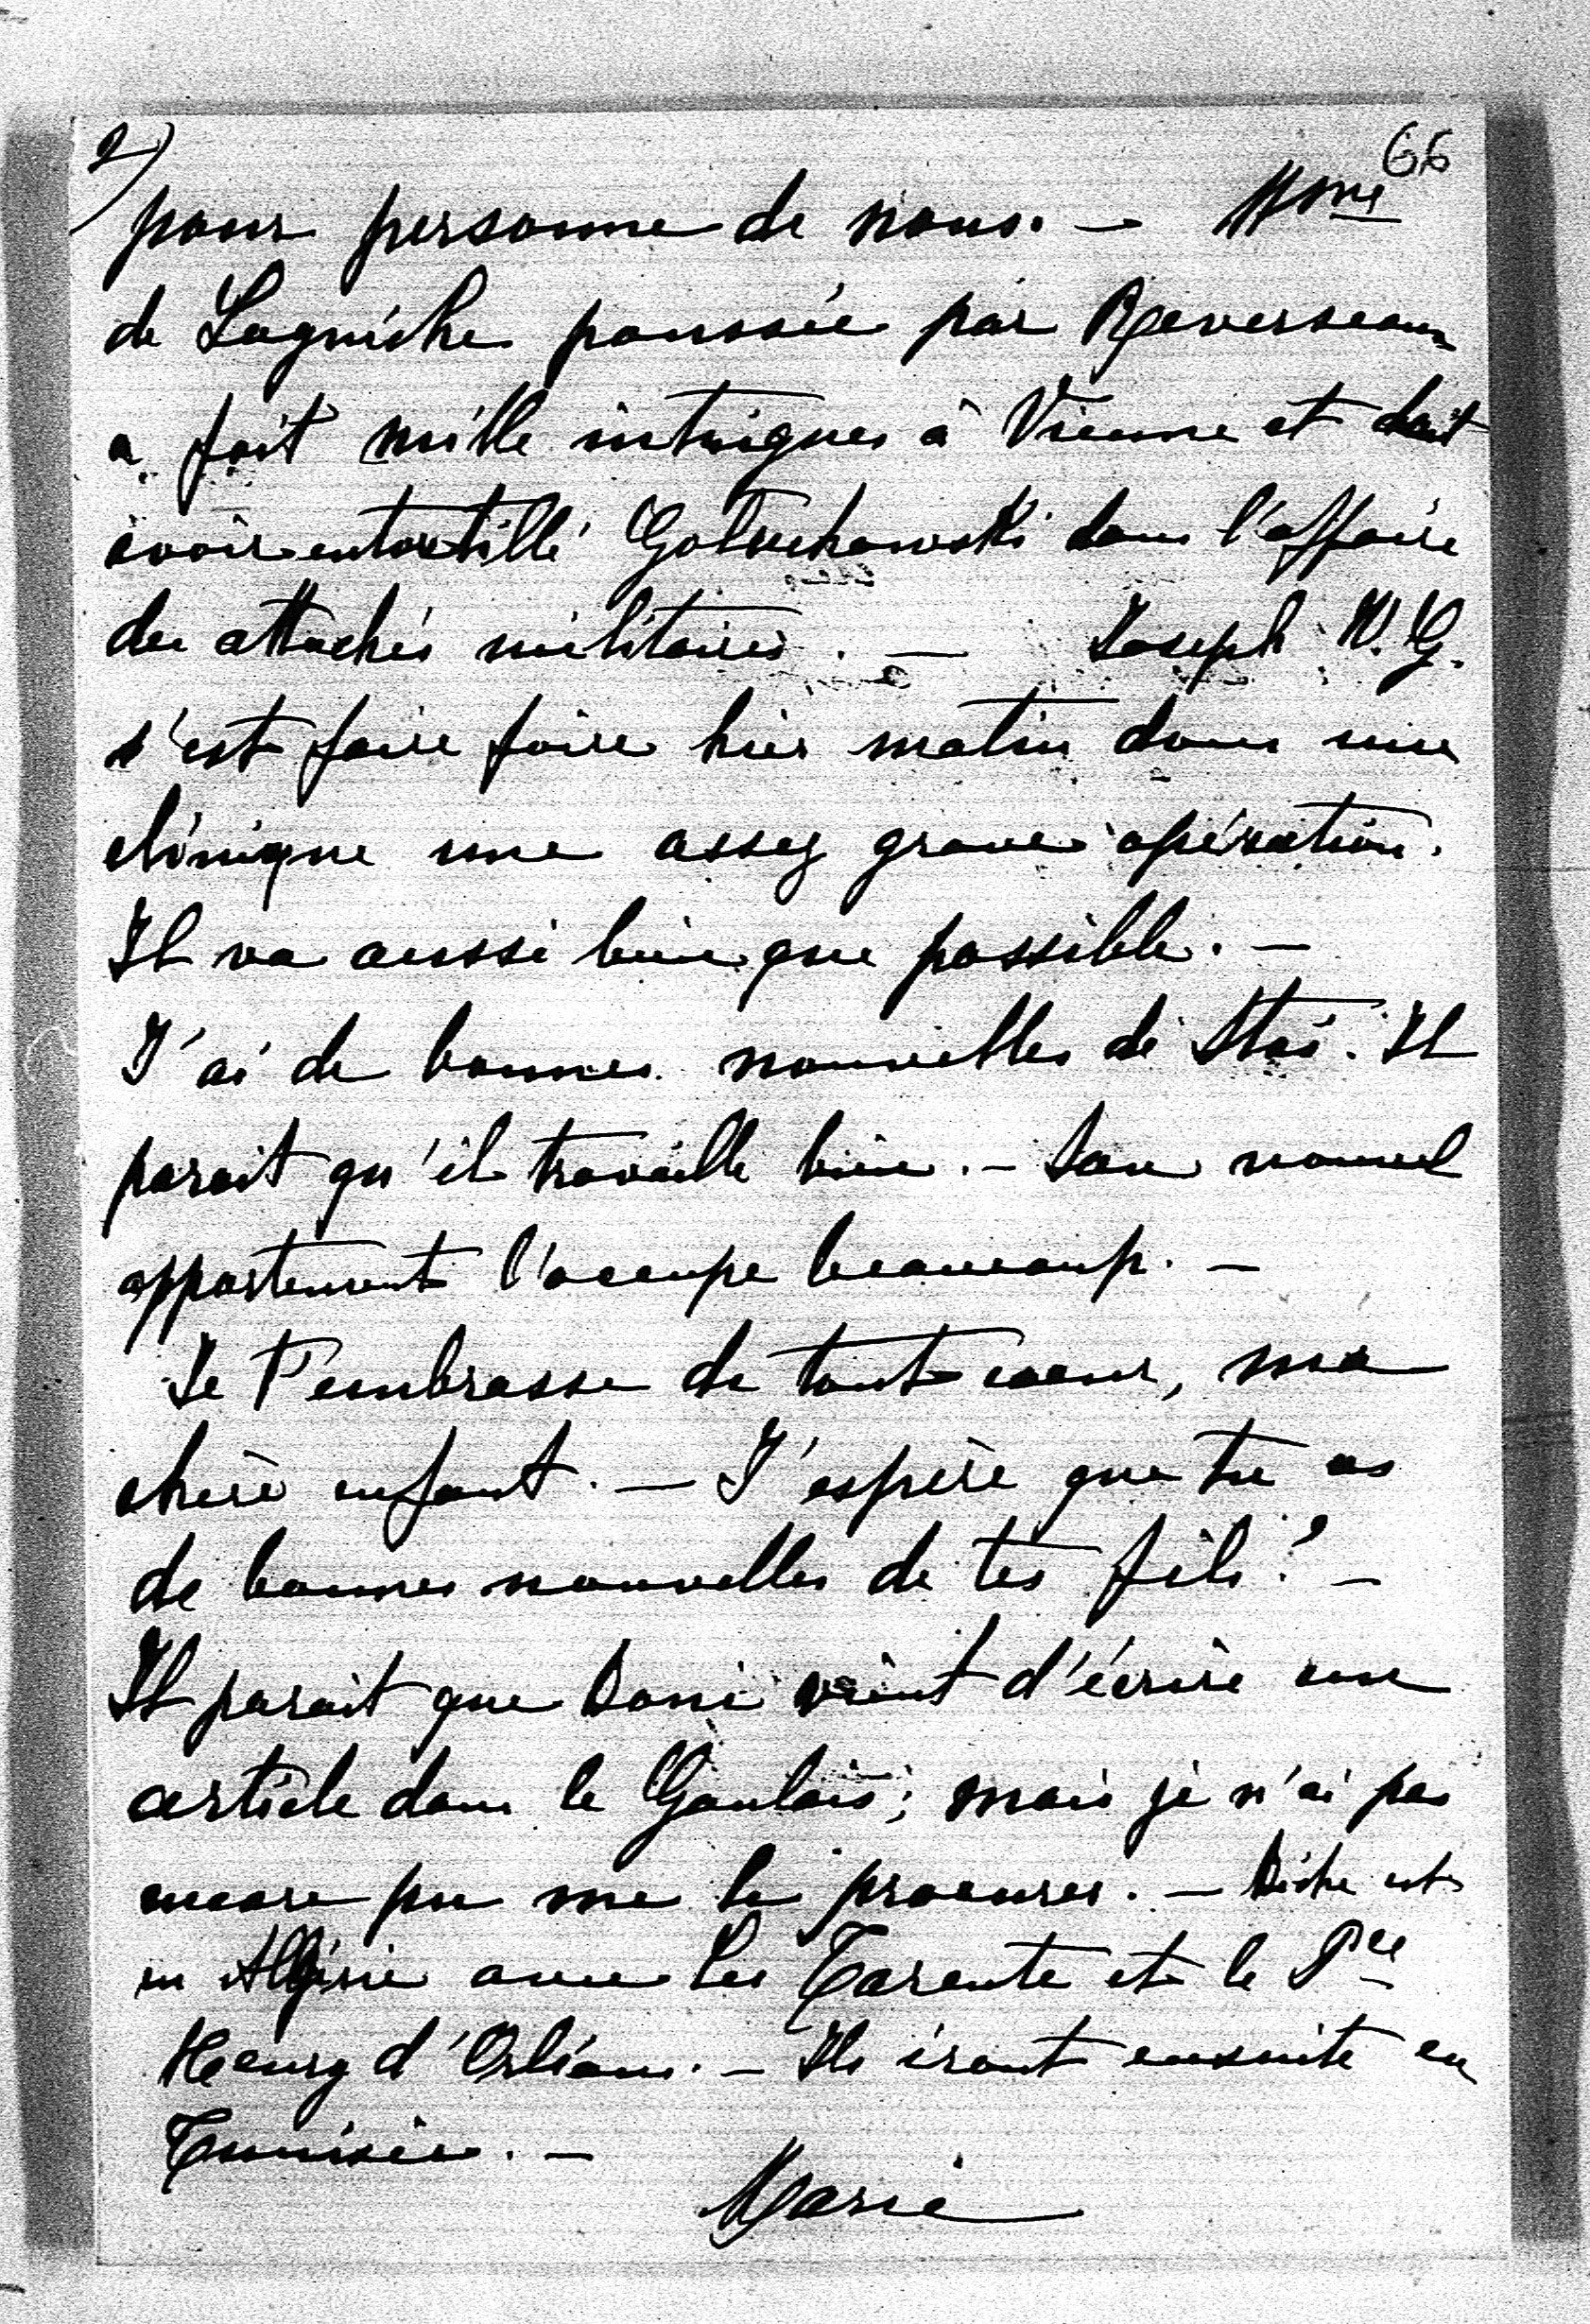 2)
66
pour personne de nous. — Mme
de Laguiche poussée par Reverseaux
a fait mille intrigues à Vienne et doit
avoir entortillé Goluchowski dans l'affaire
des attachés militaires. — Joseph W. G.
s'est faire faire hier matin dans une
clinique une assez grave opération.
Il va aussi bien que possible. —
J'ai de bonnes nouvelles de Stas. Il
parait qu'il travaille bien. — Son nouvel
appartement l'occupe beaucoup. —
Je t'embrasse de tout cœur, ma
chère enfant. — J'espère que tu as
de bonnes nouvelles de tes fils? —
Il parait que Boni vient d'écrire un
article dans le Gaulois; mais je n'ai pas
encore pu me le procurer. — Biche est
en Algérie avec les Tarente et le Pce
Henry d'Orléans. — Ils iront ensuite en
Tunisie. —
Marie